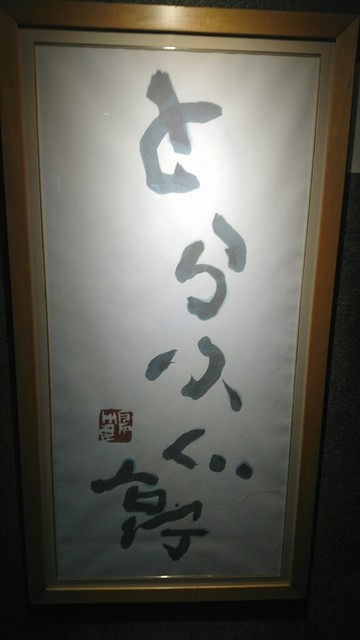 とらふぐ亭